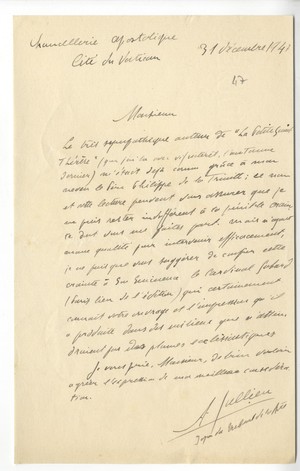 Chancellerie Apostolique
Cité du Vatican
31 décembre 1947
47
Monsieur
Le très sympathique auteur de "La Petite
Thérèse" (que j'ai lu l'automne
dernier) m'était déjà connu grâce à mon
neveu le Père Philippe de la Trinité: ce nom
et votre lecture peuvent vous assurer que je
ne puis rester indifférent à la pénible
dont vous me faites part. mais n'ayant
aucune qualité pour intervenir efficacement,
je ne puis que vous suggérer de confier cette
crainte à Son Eminence le Cardinal Suhard
(Paris lieu de l'édition) qui certainement
connait votre ouvrage et l'impression qu'il
a produite dans des milieux que n'
pas des plumes ecclésiastiques
Je vous prie, Monsieur, de bien vouloir
agréer l'expression de ma meilleure considéra
tion.
A Jullien